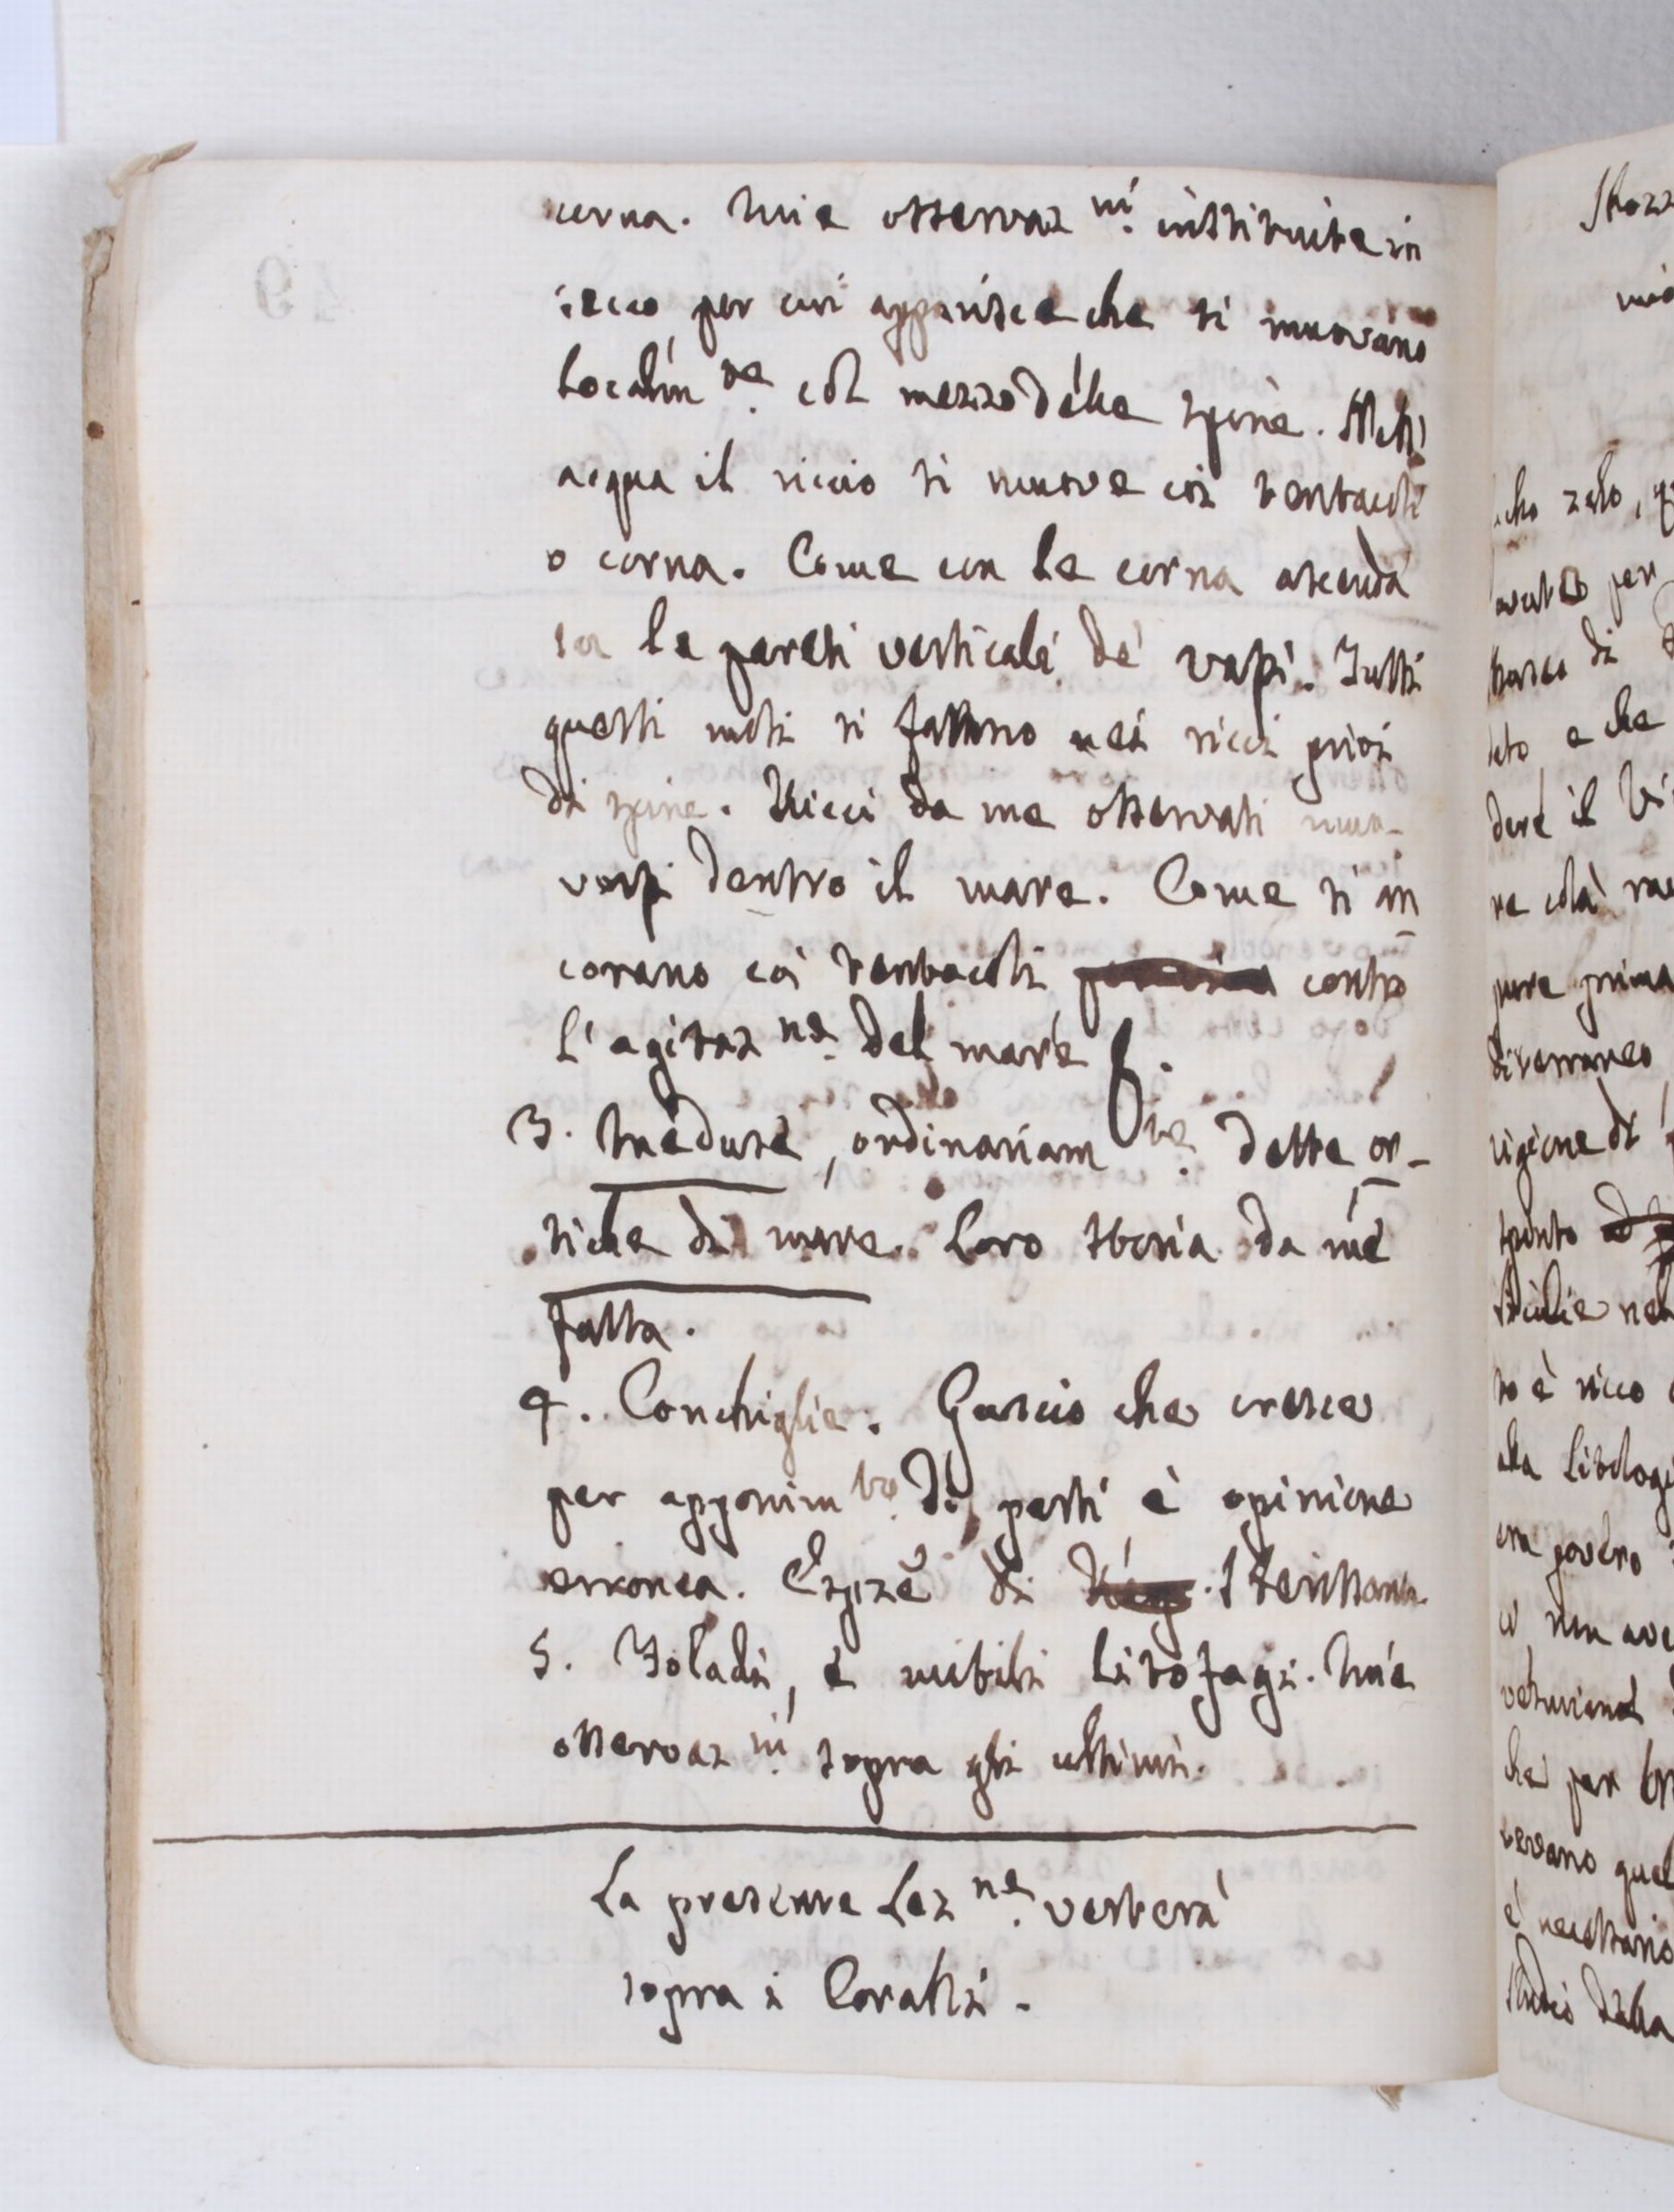 corna. Mie osservaz.ni instituite in
secco per cui apparisce che si muovano
localm.te col mezzo delle spine. Nell'
acqua il riccio si muove coi tentacoli
o corna. Come con le corna ascenda
le pareti verticali de' vasi. Tutti
questi moti si fanno nei ricci privi
di spine. Ricci da me osservati muo-
versi dentro il mare. Come si an
corano coi tentacoli contro
l'agitaz.ne del mare
3. Meduse, ordinariam.te dette or-
tiche di mare. Loro storia da me
fatta.
4. Conchiglie. Guscio che cresce
per apponim.to di parti è opinione
erronea. di
5. Foladi, e mitili litofagi. Mie
osservaz.ni sopra gli ultimi.
La presente Lez.ne verterà
sopra i Coralli.
mio
zelo,
per
di
e che
il
pure prima
di
nel
è ricco
povero
non
che per
quel
è necessario
studio della